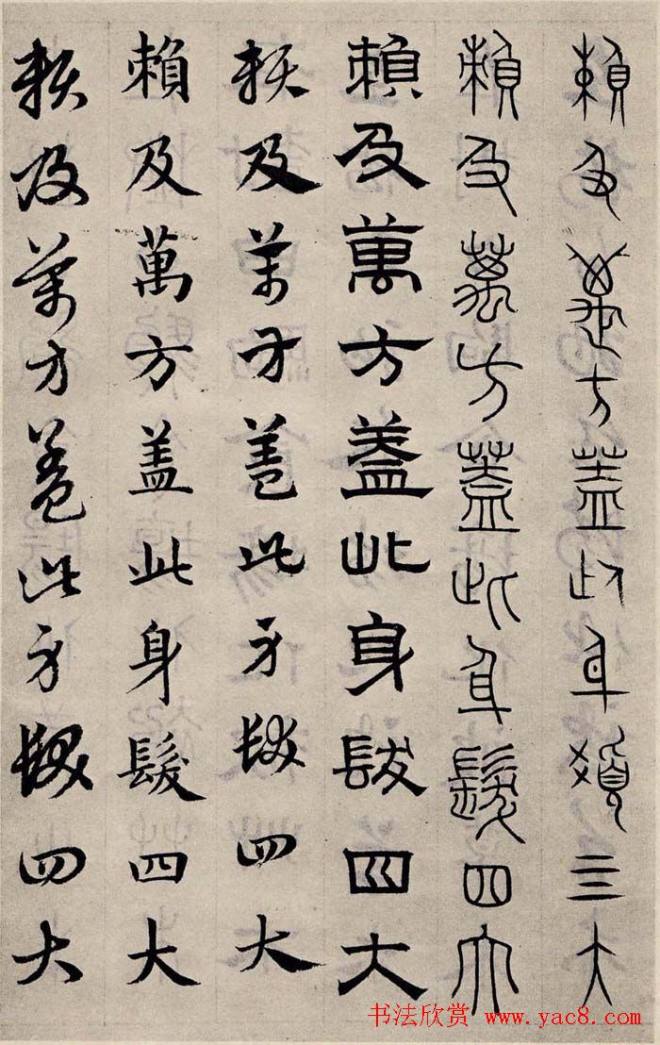 賴及萬方蓋此身髮四大
賴及萬方蓋此身髮四大
賴及萬方蓋此身髮四大
賴及萬方蓋此身髮四大
賴及萬方盖此身髮四大
賴及萬方蓋此身髮四大
书法欣赏 www.yac8.com